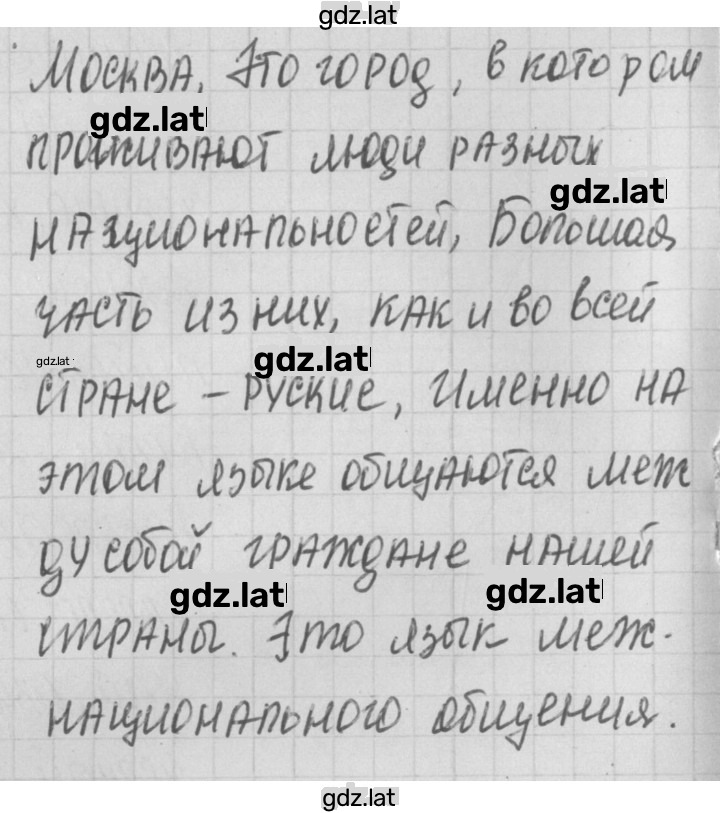 gdz.lat
Москва. Это город, в котором
gdz.lat
проживают люди разных
gdz.lat
национальностей, Бо́льшая
часть из них, как и во всей
gdz.lat
gdz.lat
стране – руские, Именно на
этом языке общаются меж
ду собой граждане нашей
gdz.lat
gdz.lat
страны. Это язык меж-
национального общения.
gdz.lat